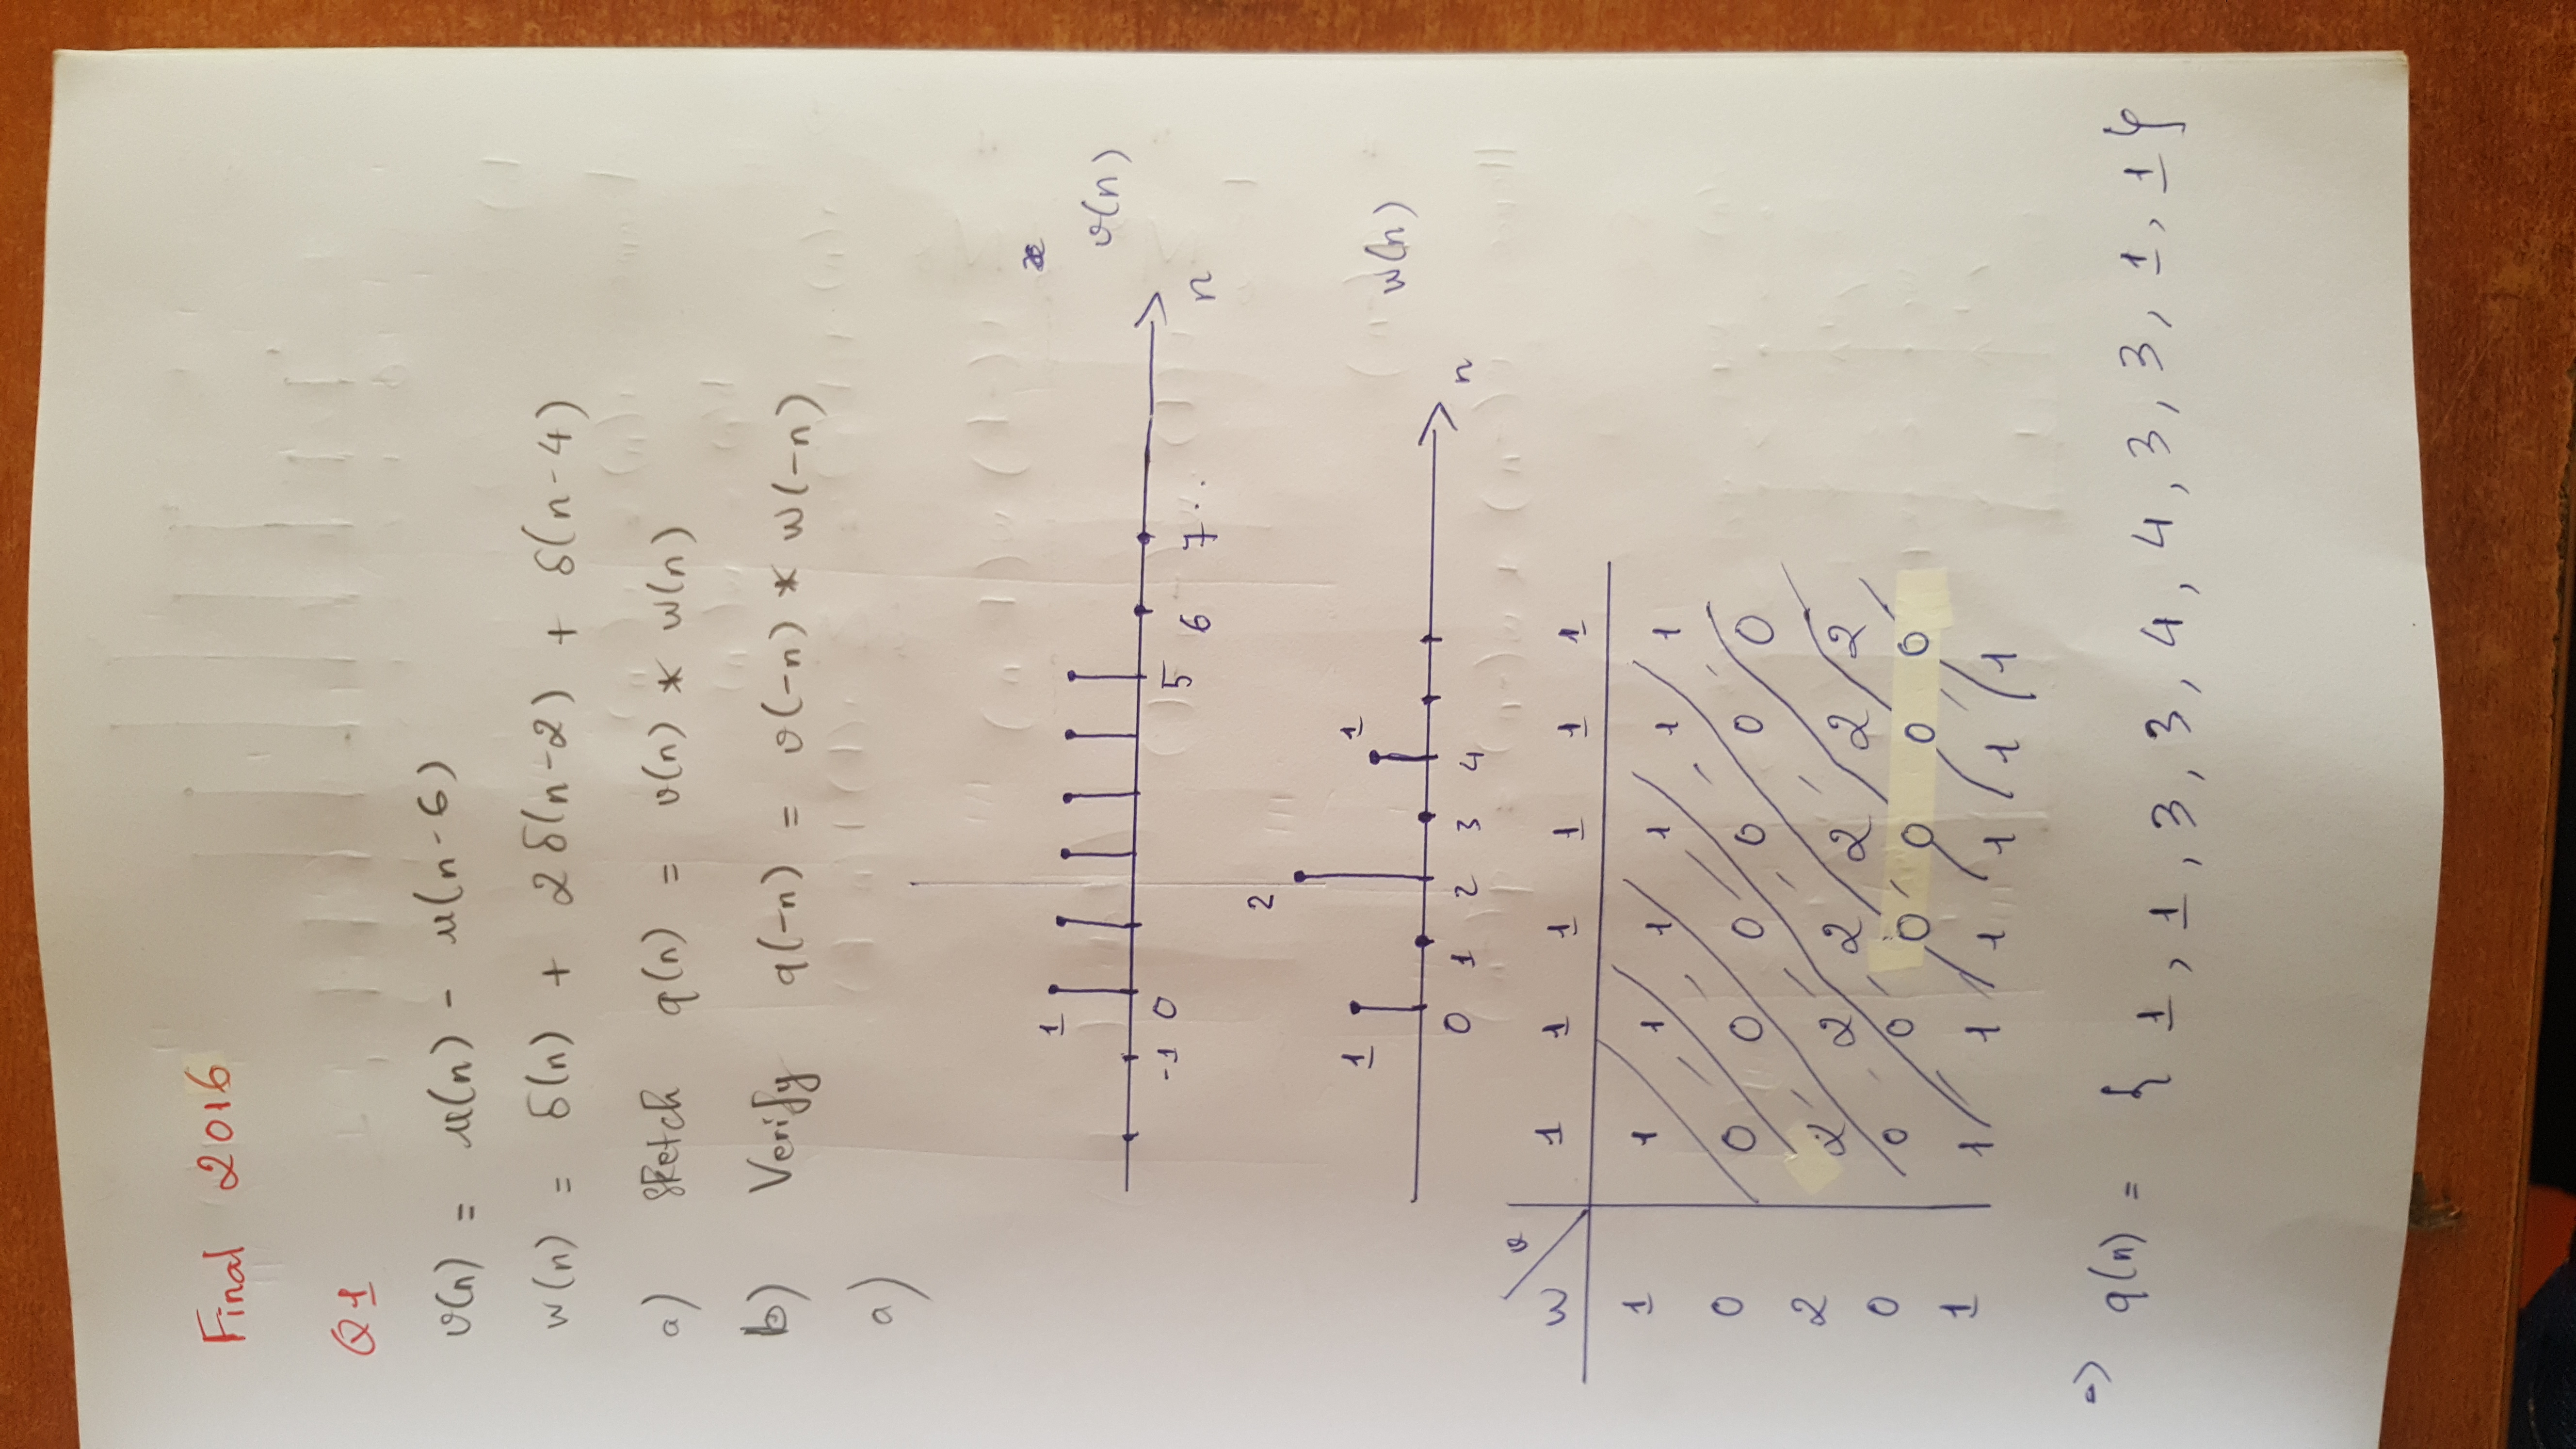 Final 2016
Q1
v(n) = u(n) - u(n-6)
w(n) = δ(n) + 2δ(n-2) + δ(n-4)
a) Sketch q(n) = v(n) * w(n)
b) Verify q(-n) = v(-n) * w(-n)
a)
1
v(n)
-1 0 5 6 7..
n
2
1 1
w(n)
0 1 2 3 4
n
w v 1 1 1 1 1 1
1 1 1 1 1 1 1
0 0 0 0 0 0 0
2 2 2 2 2 2 2
0 0 0 0 0 0 0
1 1 1 1 1 1 1
=> q(n) = { 1, 1, 3, 3, 4, 4, 3, 3, 1, 1}